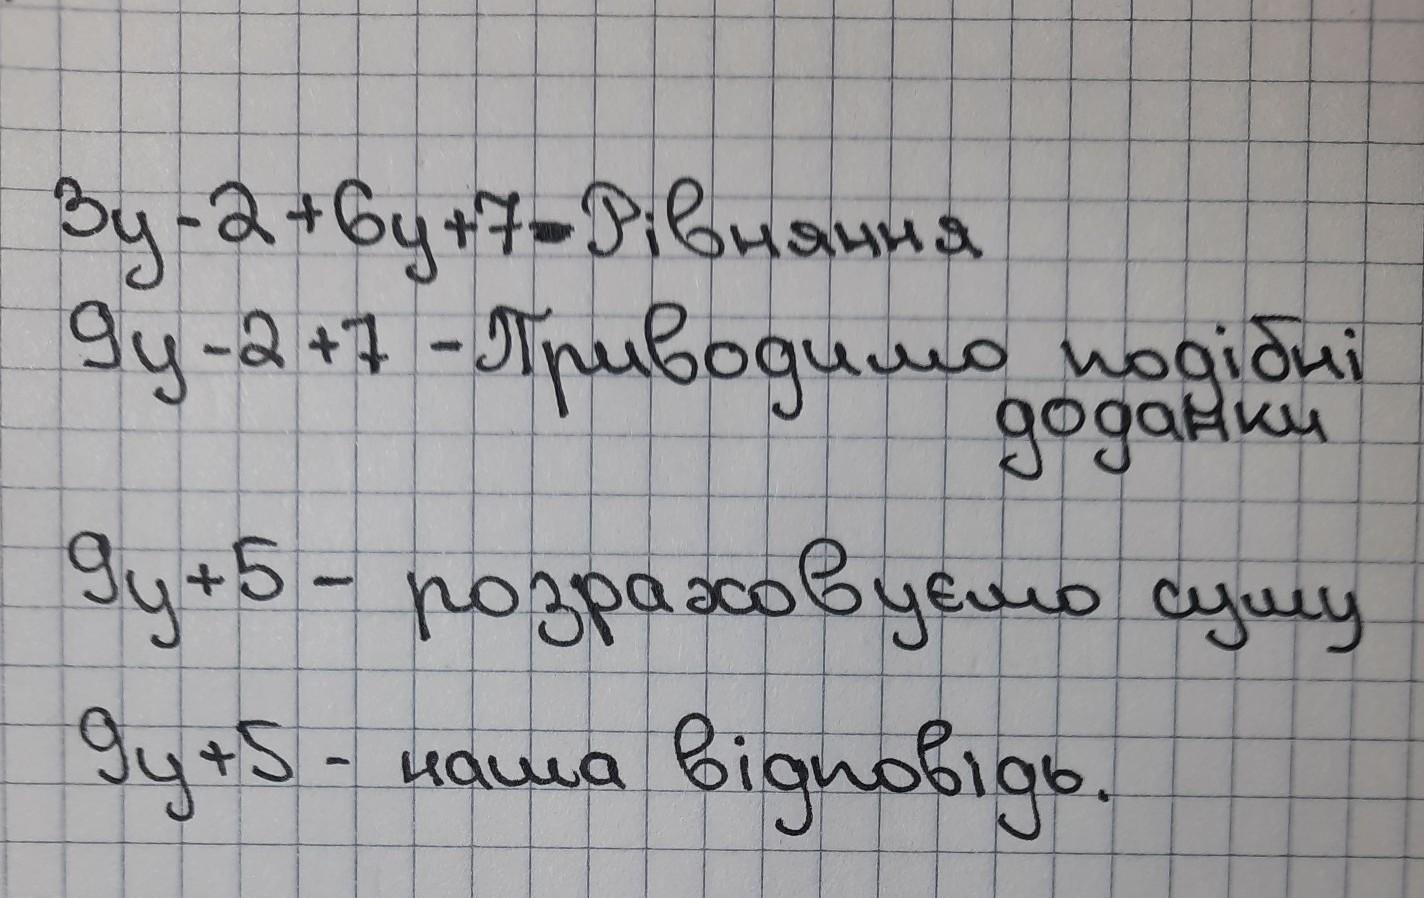 3y-2+6y+7-Рівняння
9y-2+7 -Приводимо подібні
доданки
9y+5- розраховуємо суму
9y+5- наша відповідь.